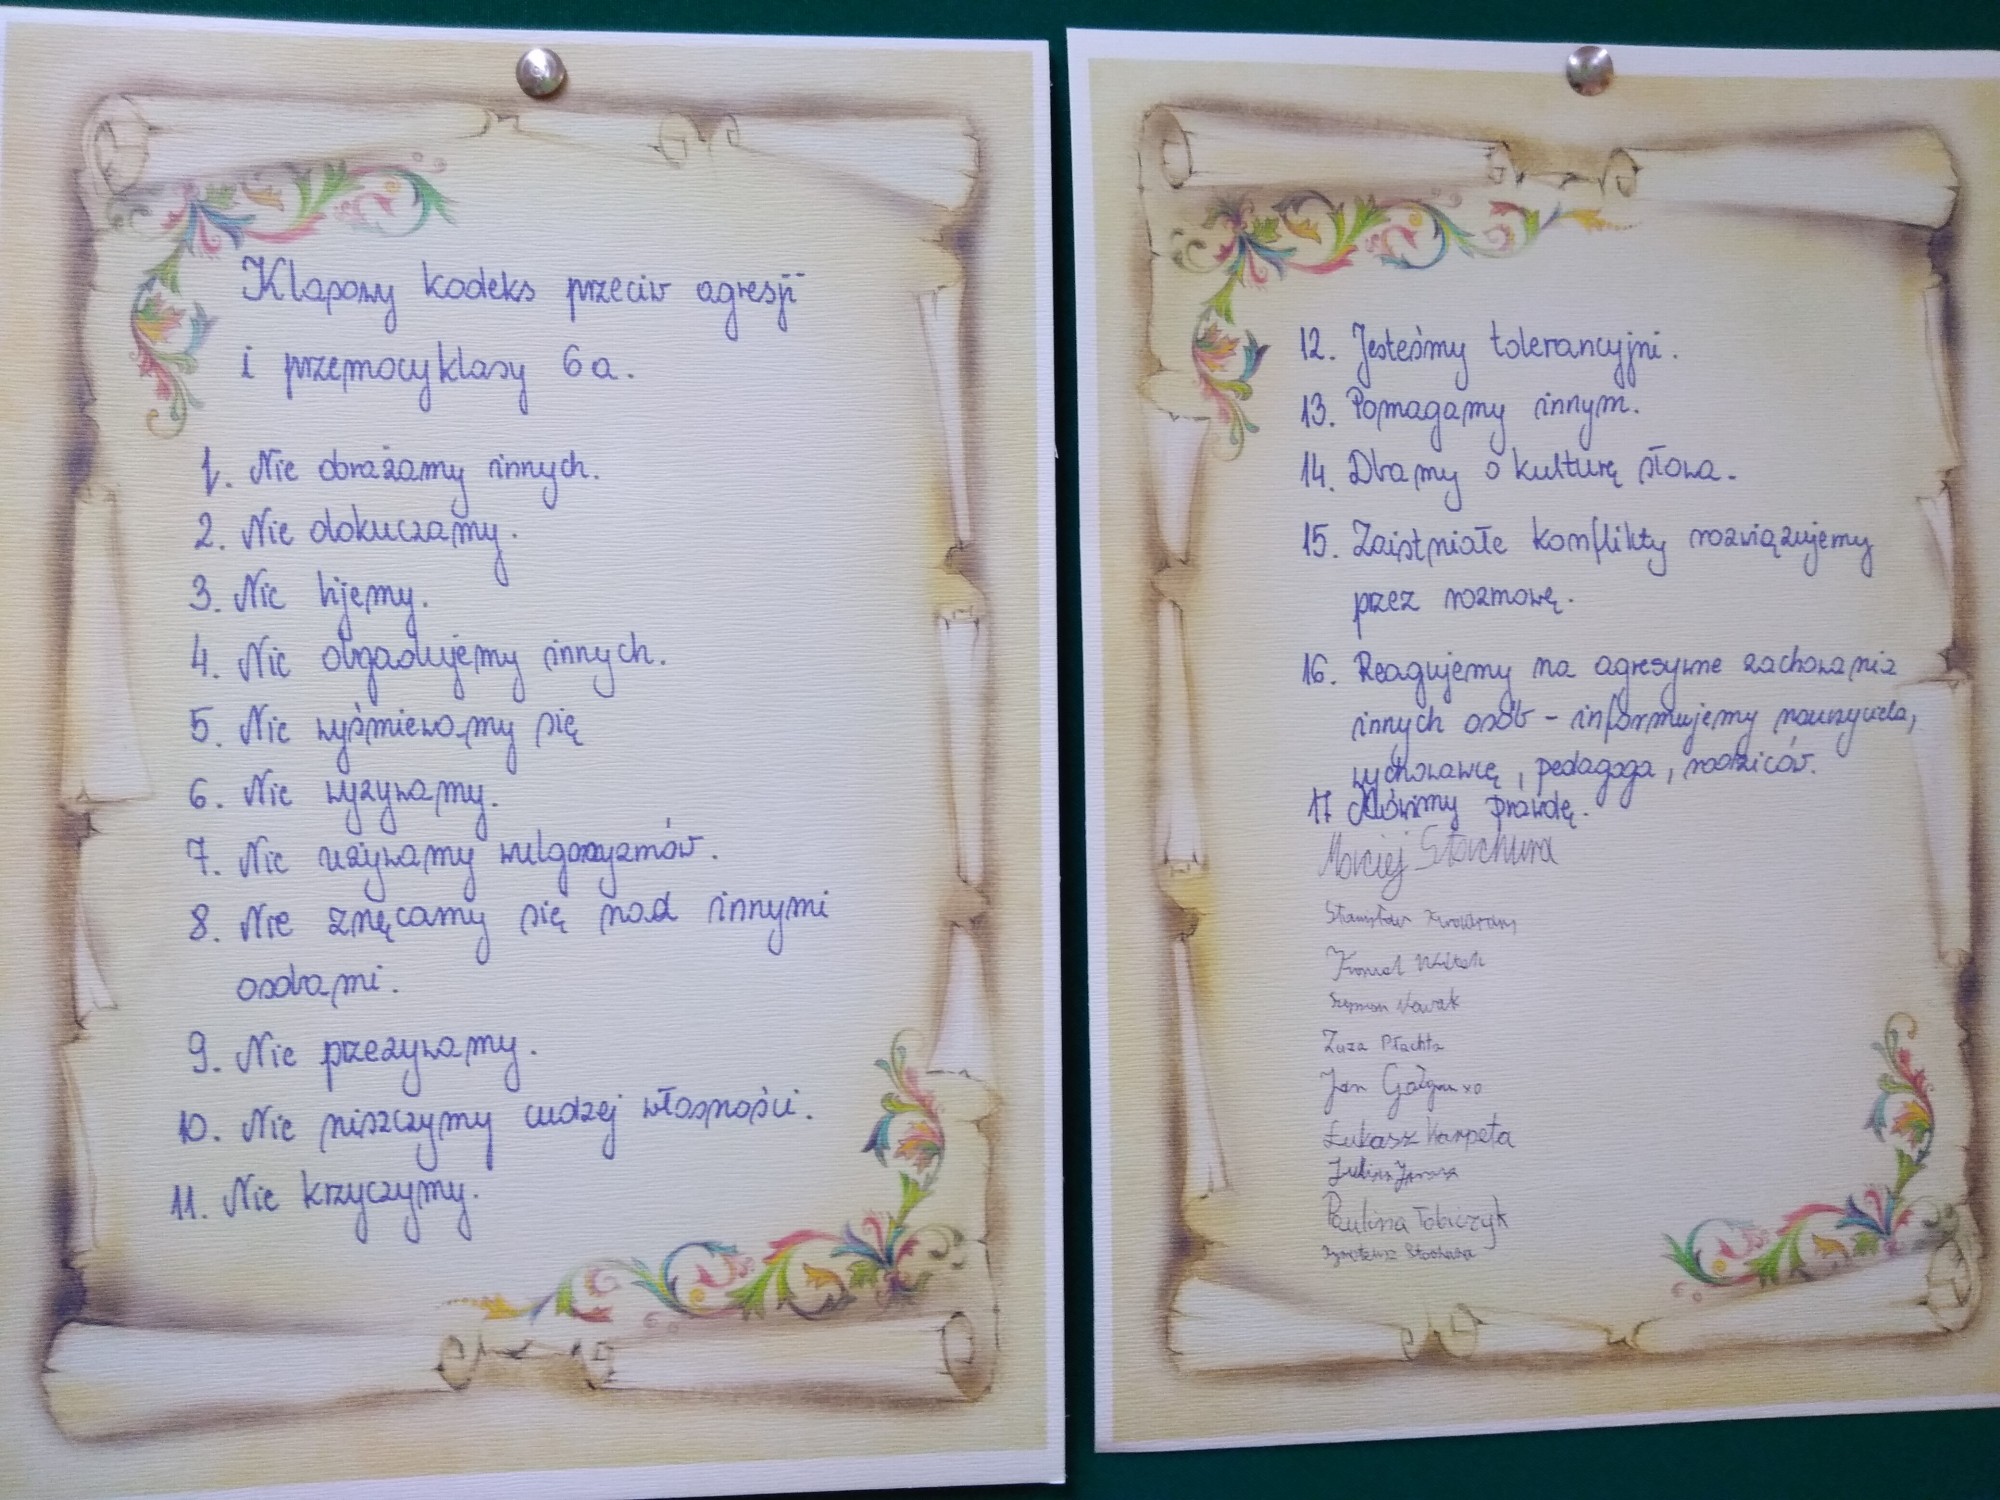 Klasowy kodeks przeciw agresji
i przemocy klasy 6a.
1. Nie obrażamy innych.
2. Nie dokuczamy.
3. Nie bijemy.
4. Nie obgadujemy innych.
5. Nie wyśmiewamy się
6. Nie wyzywamy.
7. Nie używamy wulgaryzmów.
8. Nie znęcamy się nad innymi
osobami.
9. Nie przezywamy.
10. Nie niszczymy cudzej własności.
11. Nie krzyczymy.
12. Jesteśmy tolerancyjni.
13. Pomagamy innym.
14. Dbamy o kulturę słowa.
15. Zaistniałe konflikty rozwiązujemy
przez rozmowę.
16. Reagujemy na agresywne zachowania
innych osób - informujemy nauczyciela,
wychowawcę, pedagoga, rodziców.
17 Mówimy prawdę.
Maciej Stachura
Stanisław
Konrad
Szymon Nowak
Zuza Płachta
Jan
Łukasz Karpeta
Paulina Tobiczyk
Stachura